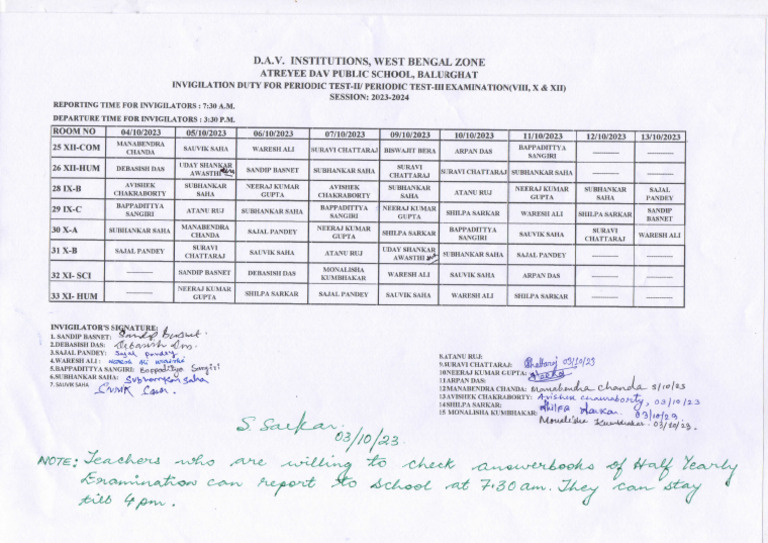 D.A.V. INSTITUTIONS, WEST BENGAL ZONE
ATREYEE DAV PUBLIC SCHOOL, BALURGHAT
INVIGILATION DUTY FOR PERIODIC TEST-II/ PERIODIC TEST-III EXAMINATION(VIII, X & XII)
SESSION: 2023-2024
REPORTING TIME FOR INVIGILATORS : 7:30 A.M.
DEPARTURE TIME FOR INVIGILATORS : 3:30 P.M.
ROOM NO 04/10/2023 05/10/2023 06/10/2023 07/10/2023 09/10/2023 10/10/2023 11/10/2023 12/10/2023 13/10/2023
25 XII-COM MANABENDRA CHANDA SAUVIK SAHA WARESH ALI SURAVI CHATTARAJ BISWAJIT BERA ARPAN DAS BAPPADITTYA SANGIRI -------- --------
26 XII-HUM DEBASISH DAS UDAY SHANKAR AWASTHI SANDIP BASNET SUBHANKAR SAHA SURAVI CHATTARAJ SURAVI CHATTARAJ SUBHANKAR SAHA -------- --------
28 IX-B AVISHEK CHAKRABORTY SUBHANKAR SAHA NEERAJ KUMAR GUPTA AVISHEK CHAKRABORTY SUBHANKAR SAHA ATANU RUJ NEERAJ KUMAR GUPTA SUBHANKAR SAHA SAJAL PANDEY
29 IX-C BAPPADITTYA SANGIRI ATANU RUJ SUBHANKAR SAHA BAPPADITTYA SANGIRI NEERAJ KUMAR GUPTA SHILPA SARKAR WARESH ALI SHILPA SARKAR SANDIP BASNET
30 X-A SUBHANKAR SAHA MANABENDRA CHANDA SAJAL PANDEY NEERAJ KUMAR GUPTA SHILPA SARKAR BAPPADITTYA SANGIRI SAUVIK SAHA SURAVI CHATTARAJ WARESH ALI
31 X-B SAJAL PANDEY SURAVI CHATTARAJ SAUVIK SAHA ATANU RUJ UDAY SHANKAR AWASTHI SUBHANKAR SAHA SAJAL PANDEY -------- --------
32 XI- SCI -------- SANDIP BASNET DEBASISH DAS MONALISHA KUMBHAKAR WARESH ALI SAUVIK SAHA ARPAN DAS -------- --------
33 XI- HUM -------- NEERAJ KUMAR GUPTA SHILPA SARKAR SAJAL PANDEY SAUVIK SAHA WARESH ALI SHILPA SARKAR -------- --------
INVIGILATOR'S SIGNATURE:
1. SANDIP BASNET: Sandip Basnet.
2.DEBASISH DAS: Debasish Das.
3.SAJAL PANDEY: Sajal Pandey
4.WARESH ALI :
5.BAPPADITTYA SANGIRI: Bappaditya Sangiri
6.SUBHANKAR SAHA: Subhankar Saha
7. SAUVIK SAHA
8.ATANU RUJ:
9.SURAVI CHATTARAJ: 03/10/23
10NEERAJ KUMAR GUPTA:
11ARPAN DAS:
12MANABENDRA CHANDA: Manabendra Chanda 3/10/23
13AVISHEK CHAKRABORTY: Avishek Chakraborty, 03/10/23
14SHILPA SARKAR: Shilpa Sarkar 03/10/23
15 MONALISHA KUMBHAKAR: Monalisha Kumbhakar 03/10/23.
S Sarkar
03/10/23.
NOTE: Teachers who are willing to check answerbooks of Half Yearly
Examination can report to school at 7:30 am. They can stay
till 4 pm.